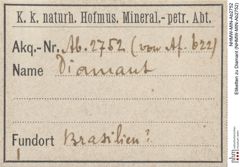 K. k. naturh. Hofmus. Mineral.- petr. Abt.
Akq.- Nr. Ab. 2752 (von Af. 622)
Name Diamant
Fundort Brasilien?
NHMW-MIN-Ab2752
Etiketten zu Diamant (NHMW-MIN-Ab2752)